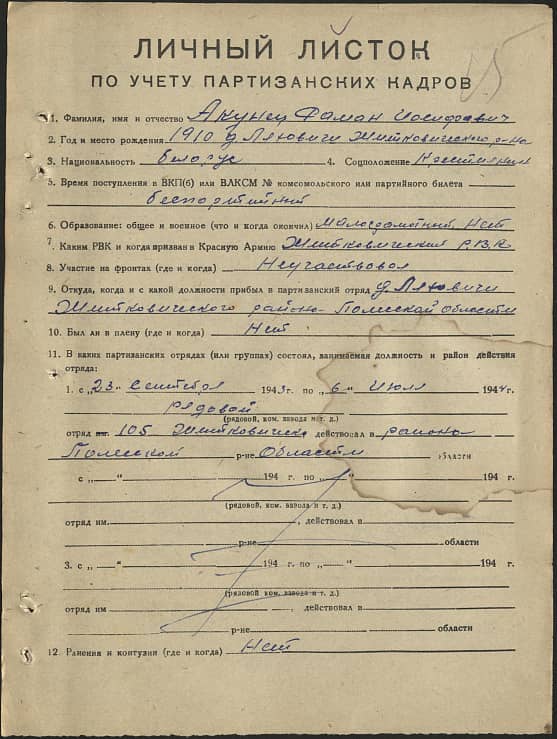 ЛИЧНЫЙ ЛИСТОК
ПО УЧЕТУ ПАРТИЗАНСКИХ КАДРОВ
1. Фамилия, имя и отчество Акунец Фаман Иосифович
2. Год и место рождения 1910 д. Ляховичи Житковического р-на
3. Национальность белорус 4. Соцположение Крестьянин
5. Время поступления в ВКП(б) или ВЛКСМ № комсомольского или партийного билета
беспартийный
6. Образование: общее и военное (что и когда окончил) малограмотный. Нет
7. Каким РВК и когда призван в Красную Армию Житковический Р.В.К
8. Участие на фронтах (где и когда) Неучаствовал
9. Откуда, когда и с какой должности прибыл в партизанский отряд д. Ляховичи
Житковического района Полесской Области
10. Был ли в плену (где и когда) Нет
11. В каких партизанских отрядах (или группах) состоял, занимаемая должность и район действия
отряда:
1. с „23“ Сентября 1943 г. по „6“ Июля 1944 г.
рядовой
(рядовой, ком. взвода и т. д.)
отряд 105 Житковическ действовал в района
Полесской р-не Области области
с „ “ 194 г. по „ “ 194 г.
(рядовой, ком. взвода и т. д.)
отряд им. , действовал в
р-не области
3. с „ “ 194 г. по „ “ 194 г.
(рядовой, ком. взвода и т. д.)
отряд им , действовал в
р-не области
12. Ранения и контузии (где и когда) Нет